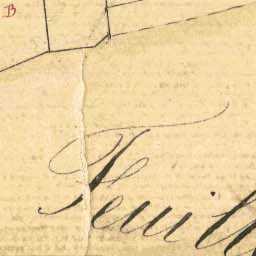 B
Feuill